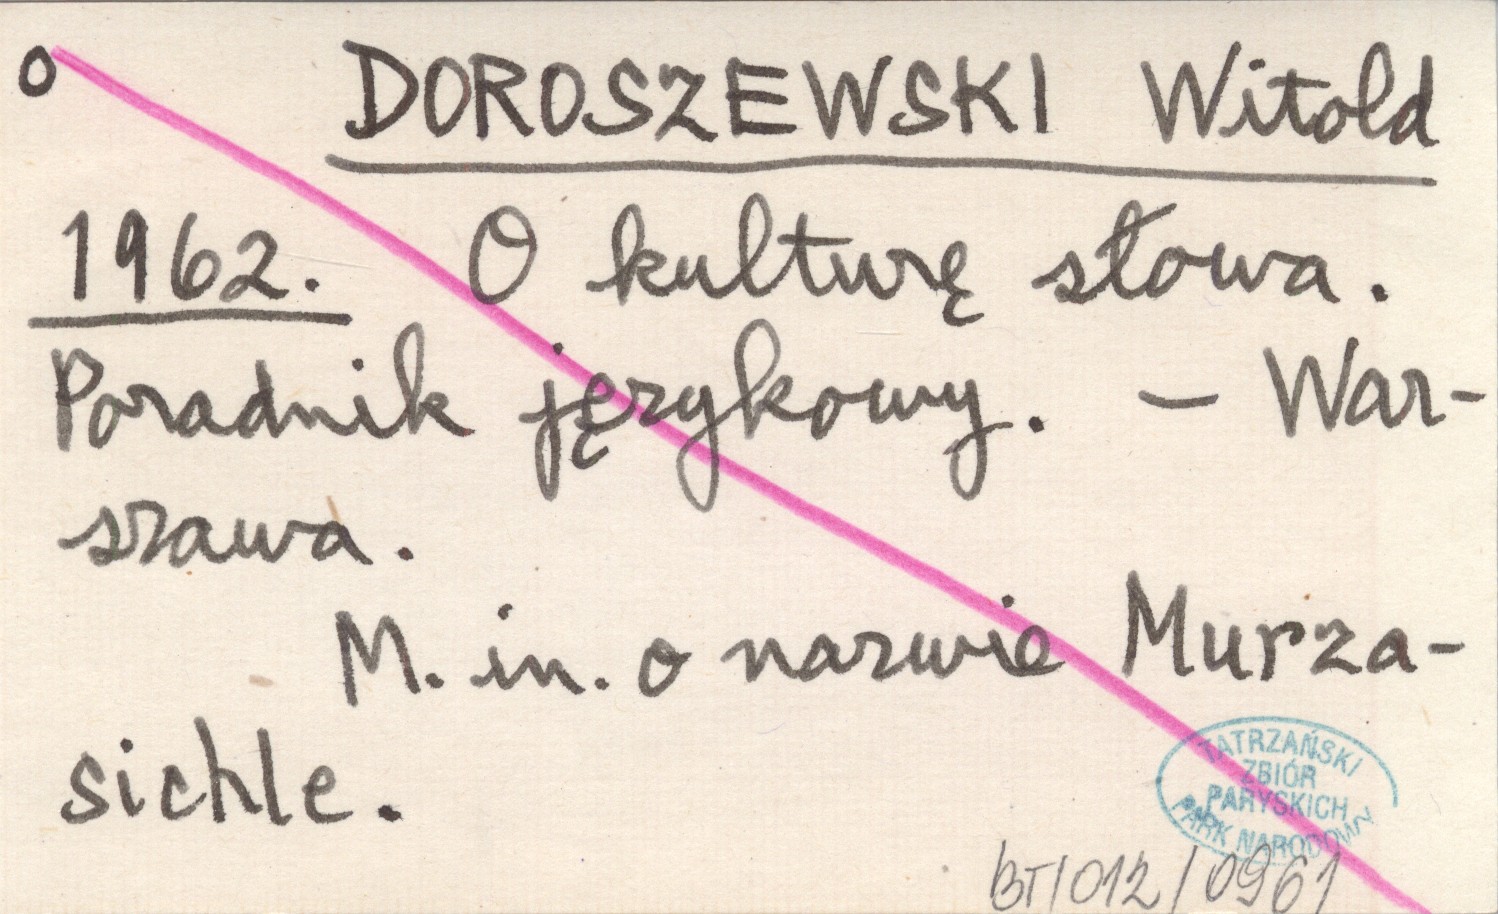 o DOROSZEWSKI Witold
1962. O kulturę słowa.
Poradnik językowy. – War-
szawa.
M. in. o nazwie Murza-
sichle.
TATRZAŃSKI
ZBIÓR
PARYSKICH
PARK NARODOWY
BT/012/0961